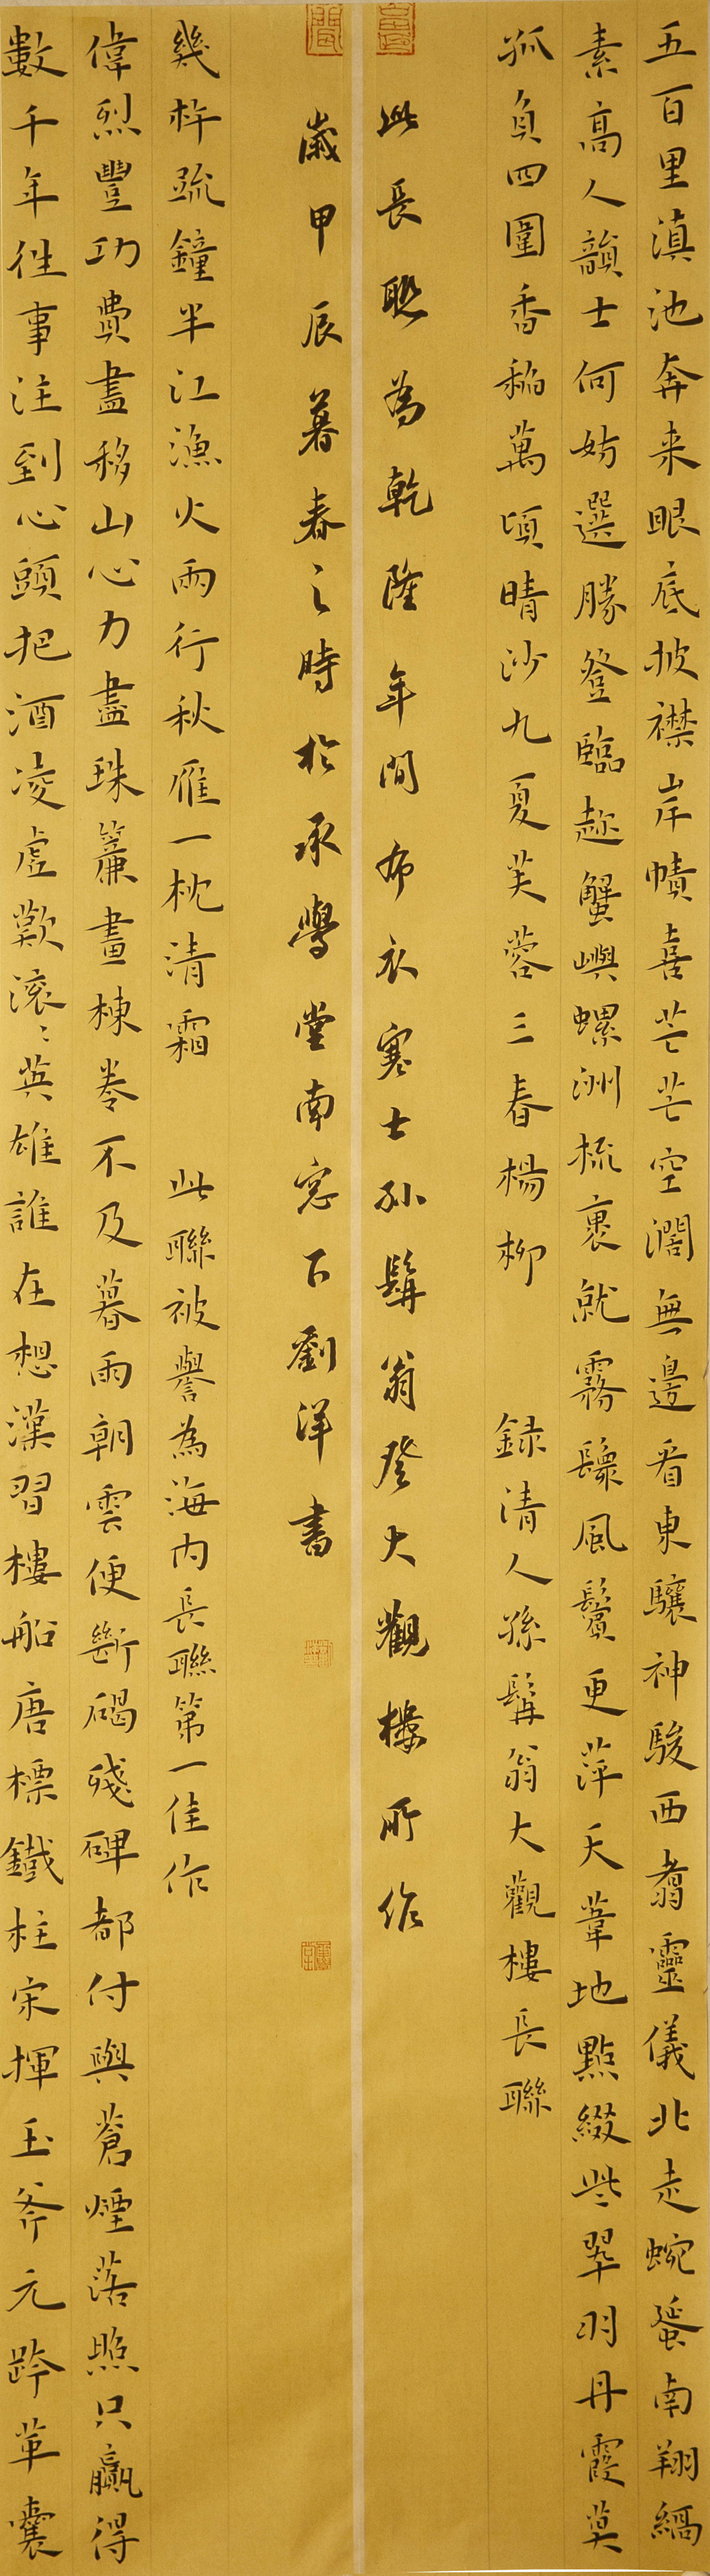 五百里滇池奔来眼底披襟岸幘喜芒芒空濶無邊看東驤神駿西翥靈儀北走蜿蜒南翔縞
素高人韻士何妨選勝登臨趂蟹嶼螺洲梳裹就霧鬟風鬢更萍天葦地點綴些翠羽丹霞莫
孤負四圍香稻萬頃晴沙九夏芙蓉三春楊柳 録清人孫髯翁大觀樓長聯
此長聯為乾隆年間布衣寒士孙髯翁登大觀樓所作
數千年往事注到心頭把酒凌虛歎滾々英雄誰在想漢習樓船唐標鐵柱宋揮玉斧元跨革囊
偉烈豐功費盡移山心力盡珠簾畫棟卷不及暮雨朝雲便斷碣殘碑都付與蒼煙落照只贏得
幾杵疏鐘半江漁火兩行秋雁一枕清霜 此聯被譽為海內長聯第一佳作
歲甲辰暮春之時於承學堂南窓下劉洋書